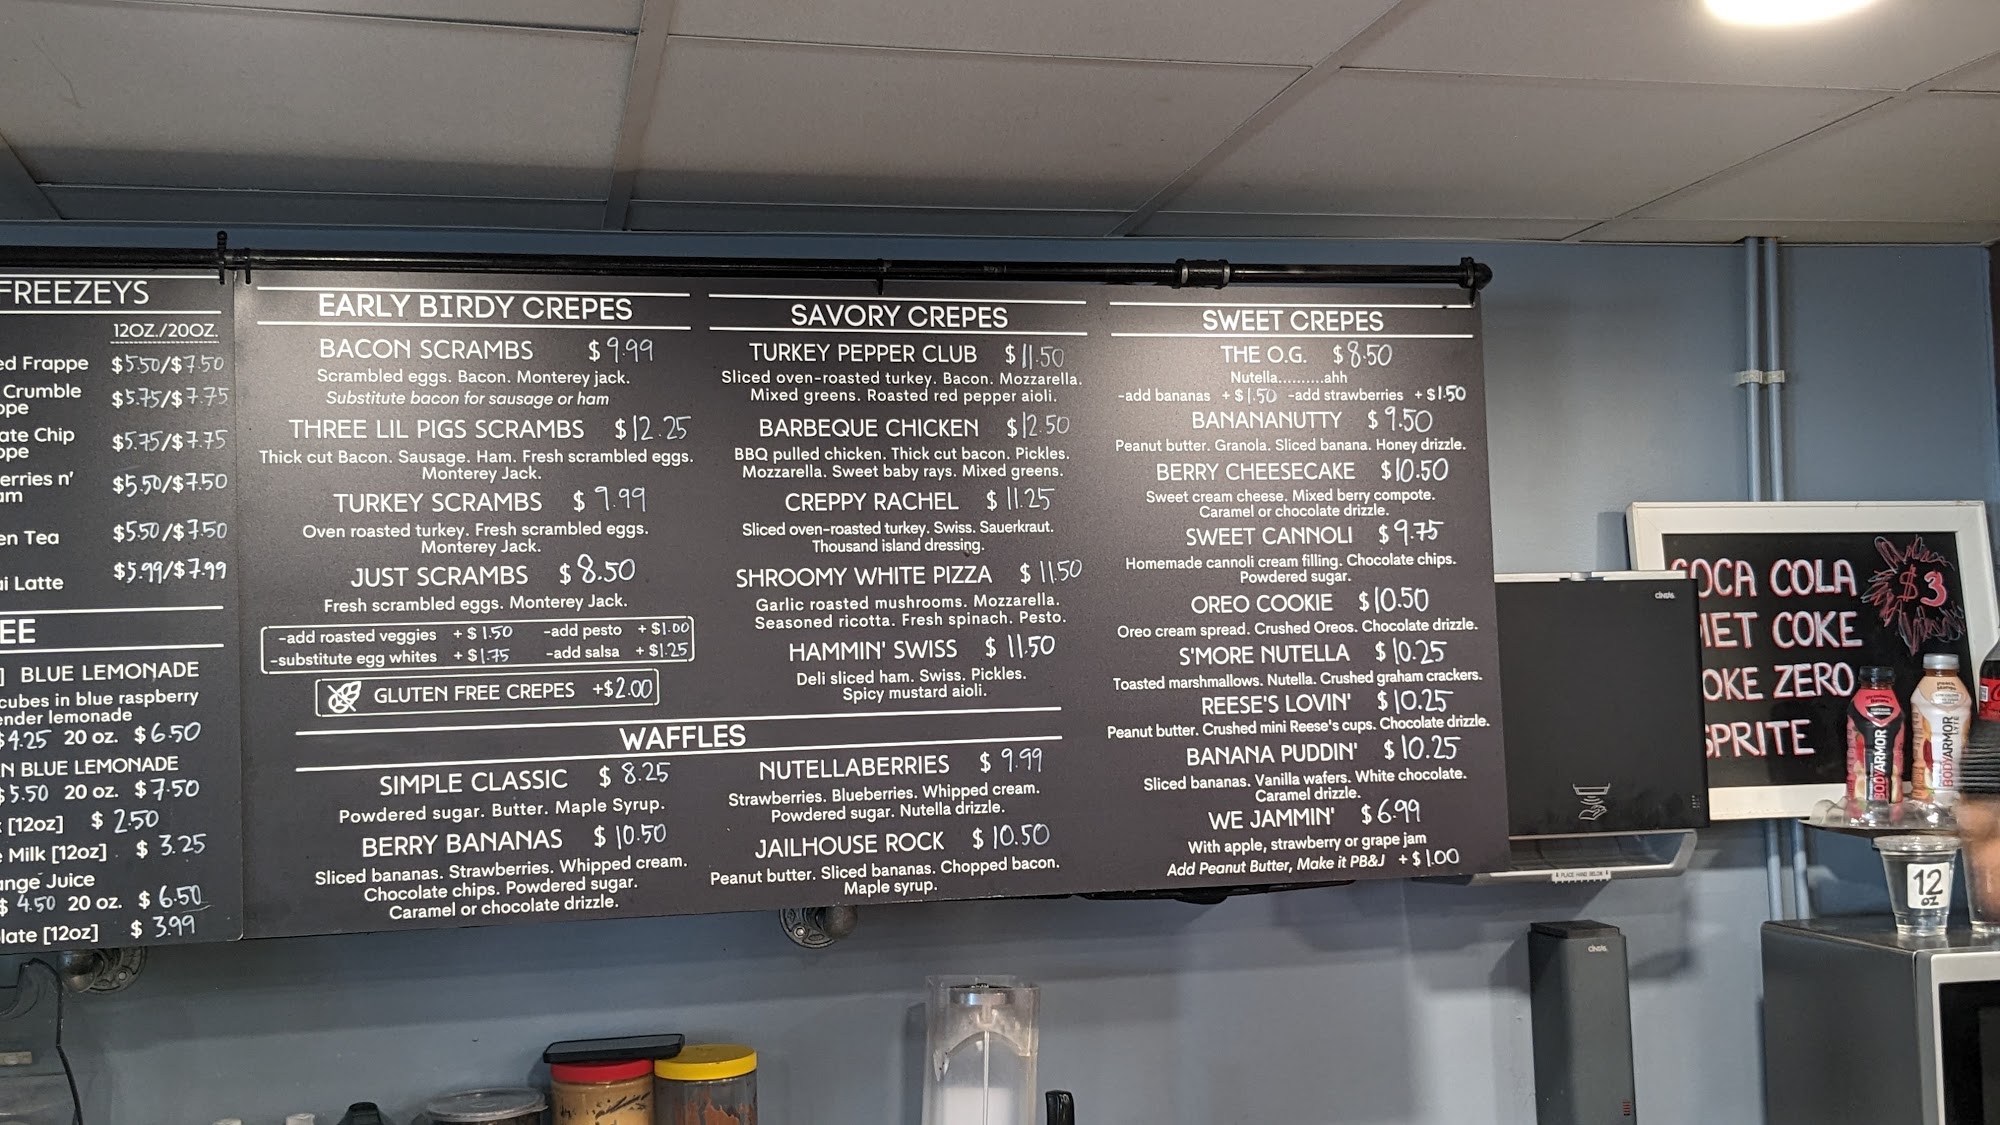 FREEZEYS
12OZ./20OZ.
ed Frappe $5.50/$7.50
Crumble
ppe $5.75/$7.75
ate Chip
ppe $5.75/$7.75
erries n'
am $5.50/$7.50
en Tea $5.50/$7.50
ai Latte $5.99/$7.99
EE
] BLUE LEMONADE
cubes in blue raspberry
ender lemonade
20 oz. $6.50
N BLUE LEMONADE
$5.50 20 oz. $7.50
[12oz] $2.50
e Milk [12oz] $3.25
ange Juice
$4.50 20 oz. $6.50
late [12oz] $3.99
EARLY BIRDY CREPES
BACON SCRAMBS $9.99
Scrambled eggs. Bacon. Monterey jack.
Substitute bacon for sausage or ham
THREE LIL PIGS SCRAMBS $12.25
Thick cut Bacon. Sausage. Ham. Fresh scrambled eggs.
Monterey Jack.
TURKEY SCRAMBS $9.99
Oven roasted turkey. Fresh scrambled eggs.
Monterey Jack.
JUST SCRAMBS $8.50
Fresh scrambled eggs. Monterey Jack.
-add roasted veggies +$1.50 -add pesto +$1.00
-substitute egg whites +$1.75 -add salsa +$1.25
GLUTEN FREE CREPES +$2.00
SAVORY CREPES
TURKEY PEPPER CLUB $11.50
Sliced oven-roasted turkey. Bacon. Mozzarella.
Mixed greens. Roasted red pepper aioli.
BARBEQUE CHICKEN $12.50
BBQ pulled chicken. Thick cut bacon. Pickles.
Mozzarella. Sweet baby rays. Mixed greens.
CREPPY RACHEL $11.25
Sliced oven-roasted turkey. Swiss. Sauerkraut.
Thousand island dressing.
SHROOMY WHITE PIZZA $11.50
Garlic roasted mushrooms. Mozzarella.
Seasoned ricotta. Fresh spinach. Pesto.
HAMMIN' SWISS $11.50
Deli sliced ham. Swiss. Pickles.
Spicy mustard aioli.
WAFFLES
SIMPLE CLASSIC $8.25
Powdered sugar. Butter. Maple Syrup.
BERRY BANANAS $10.50
Sliced bananas. Strawberries. Whipped cream.
Chocolate chips. Powdered sugar.
Caramel or chocolate drizzle.
NUTELLABERRIES $9.99
Strawberries. Blueberries. Whipped cream.
Powdered sugar. Nutella drizzle.
JAILHOUSE ROCK $10.50
Peanut butter. Sliced bananas. Chopped bacon.
Maple syrup.
SWEET CREPES
THE O.G. $8.50
Nutella..........ahh
-add bananas +$1.50 -add strawberries +$1.50
BANANANUTTY $9.50
Peanut butter. Granola. Sliced banana. Honey drizzle.
BERRY CHEESECAKE $10.50
Sweet cream cheese. Mixed berry compote.
Caramel or chocolate drizzle.
SWEET CANNOLI $9.75
Homemade cannoli cream filling. Chocolate chips.
Powdered sugar.
OREO COOKIE $10.50
Oreo cream spread. Crushed Oreos. Chocolate drizzle.
S'MORE NUTELLA $10.25
Toasted marshmallows. Nutella. Crushed graham crackers.
REESE'S LOVIN' $10.25
Peanut butter. Crushed mini Reese's cups. Chocolate drizzle.
BANANA PUDDIN' $10.25
Sliced bananas. Vanilla wafers. White chocolate.
Caramel drizzle.
WE JAMMIN' $6.99
With apple, strawberry or grape jam
Add Peanut Butter, Make it PB&J +$1.00
COCA COLA $3
IET COKE
OKE ZERO
SPRITE
BODYARMOR
BODYARMOR
12
oz